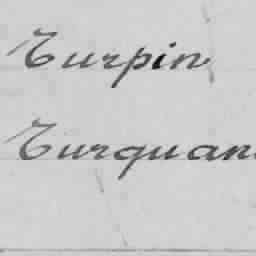 Turpin
Turquan